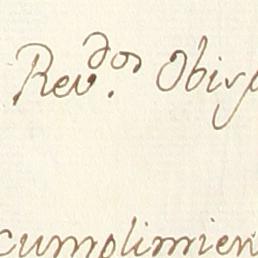 Rev.dos Obisp
cumplimien